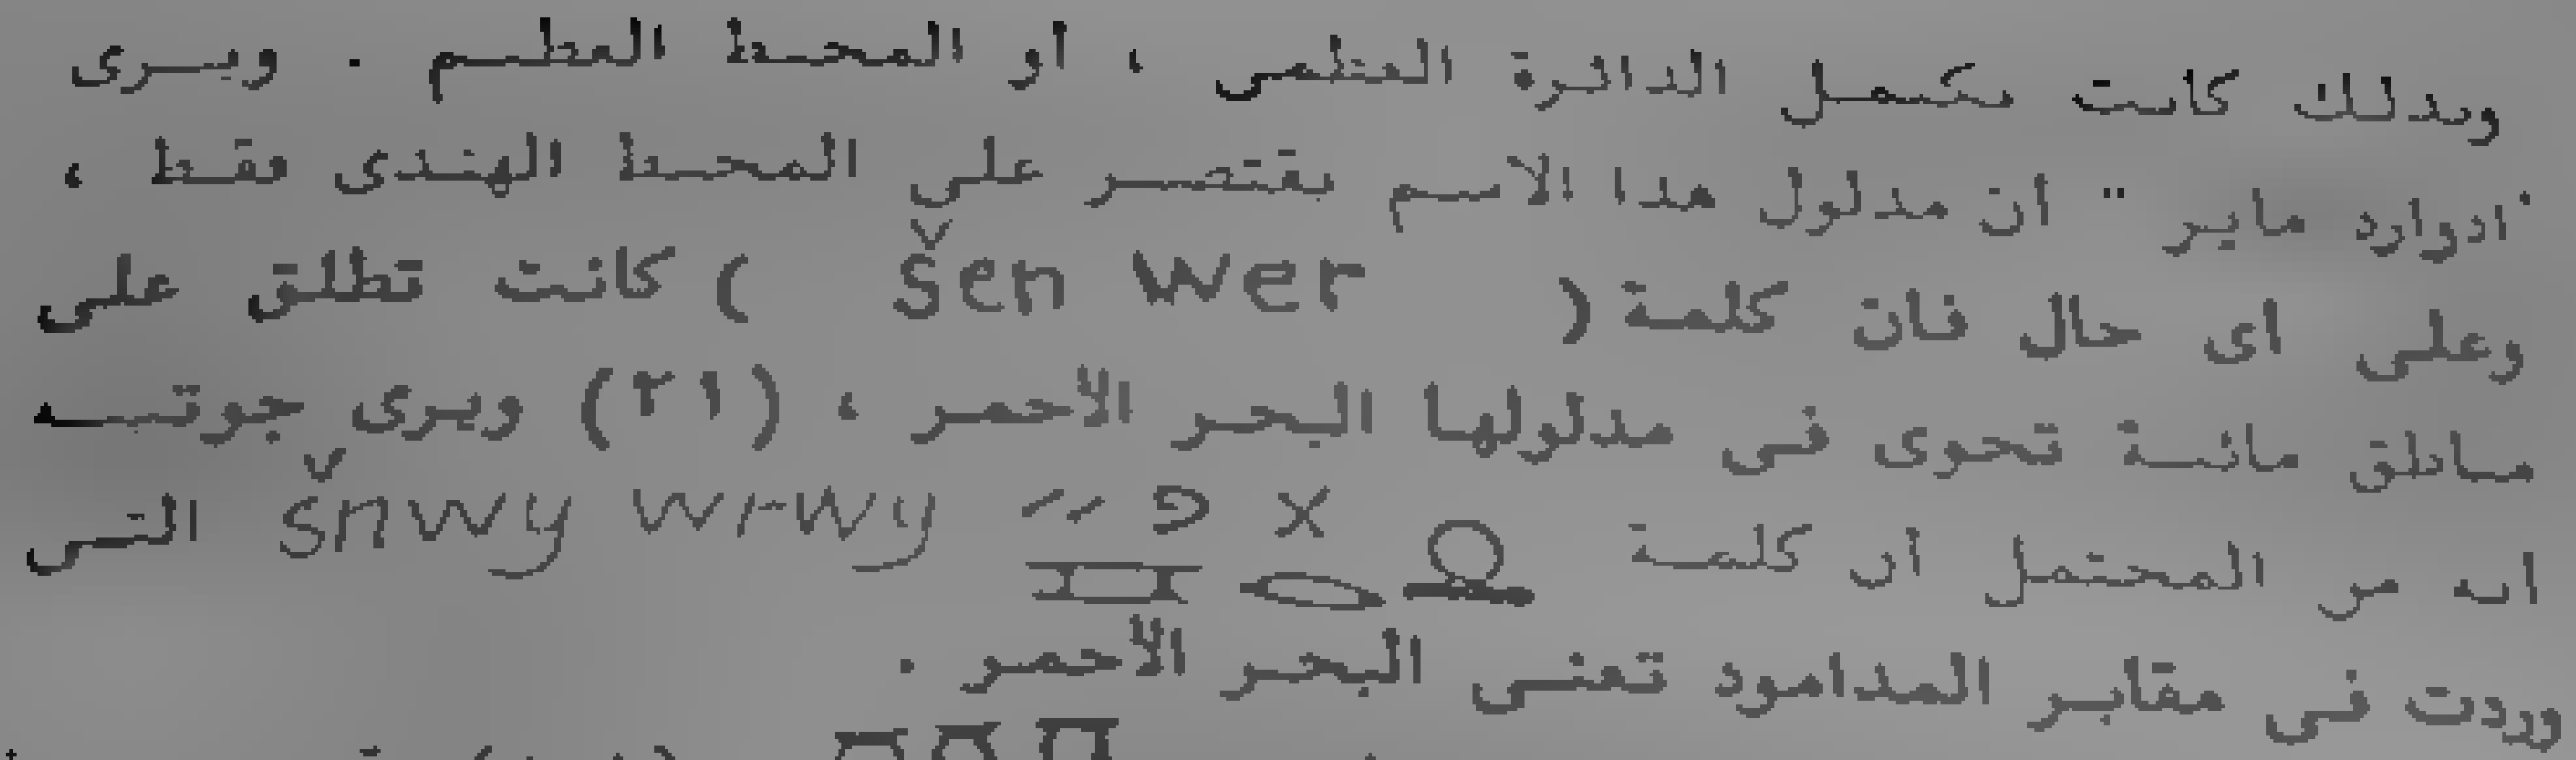 وبذلك كانت تكمل الدائرة العظمى ، أو المحيط العظيم . ويرى
ادوارد ماير " ان مدلول هذا الاسم يقتصر على المحيط الهندى فقط ،
وعلى اى حال فان كلمة ( šen wer ) كانت تطلق على
مناطق مائية تحوى فى مدلولها البحر الأحمر ، (٢١) ويرى جوتييه
انه من المحتمل أن كلمة šnwy wrwy التى
وردت فى مقابر المدامود تعنى البحر الأحمر .